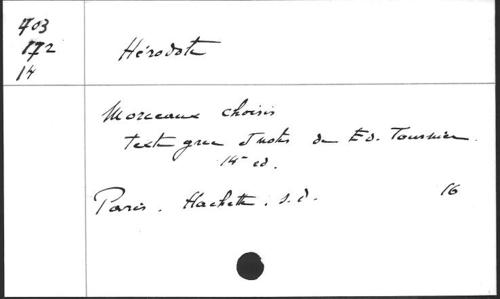 703
172
14
Hérodote
Morceaux choisis
texte grec et notes de Ed. Tournier.
14e ed.
Paris. Hachette. s.d. 16